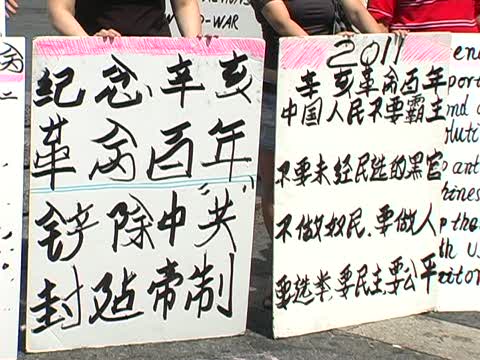 D-WAR
纪念辛亥
革命百年
铲除中共
封建帝制
2011
辛亥革命百年
中国人民不要霸主
不要未经民选的黑官
不做奴民.要做人
要选举.要民主.要公平